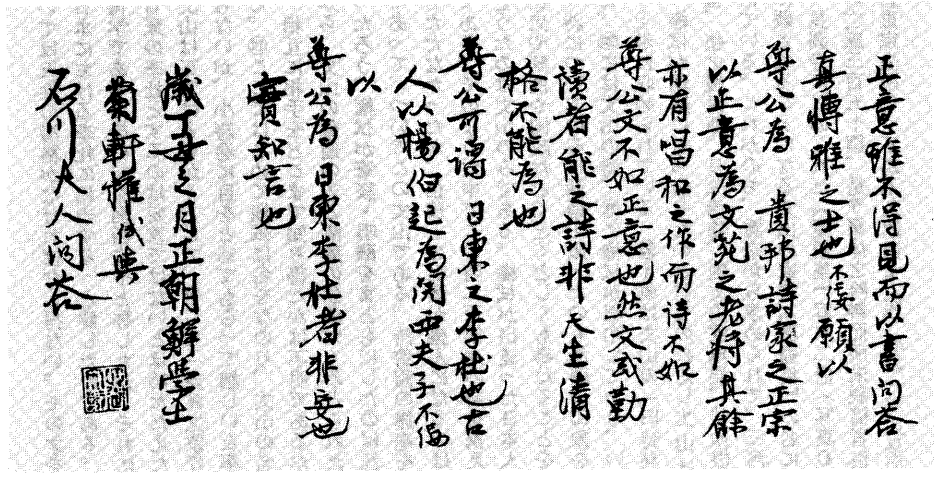 正意雖不得見而以書問答
真博雅之士也不佞願以
尊公為 貴邦詩家之正宗
以正意為文苑之老將其餘
亦有唱和之作而詩不如
尊公文不如正意也然文或勤
讀者能之詩非天生清
格不能為也
尊公可謂 日東之李杜也古
人以楊伯起為関西夫子不佞
以
尊公為日東李杜者非妄也
實知言也
歲丁丑之月正朝鮮學士
菊軒權侙輿
石川大人問答